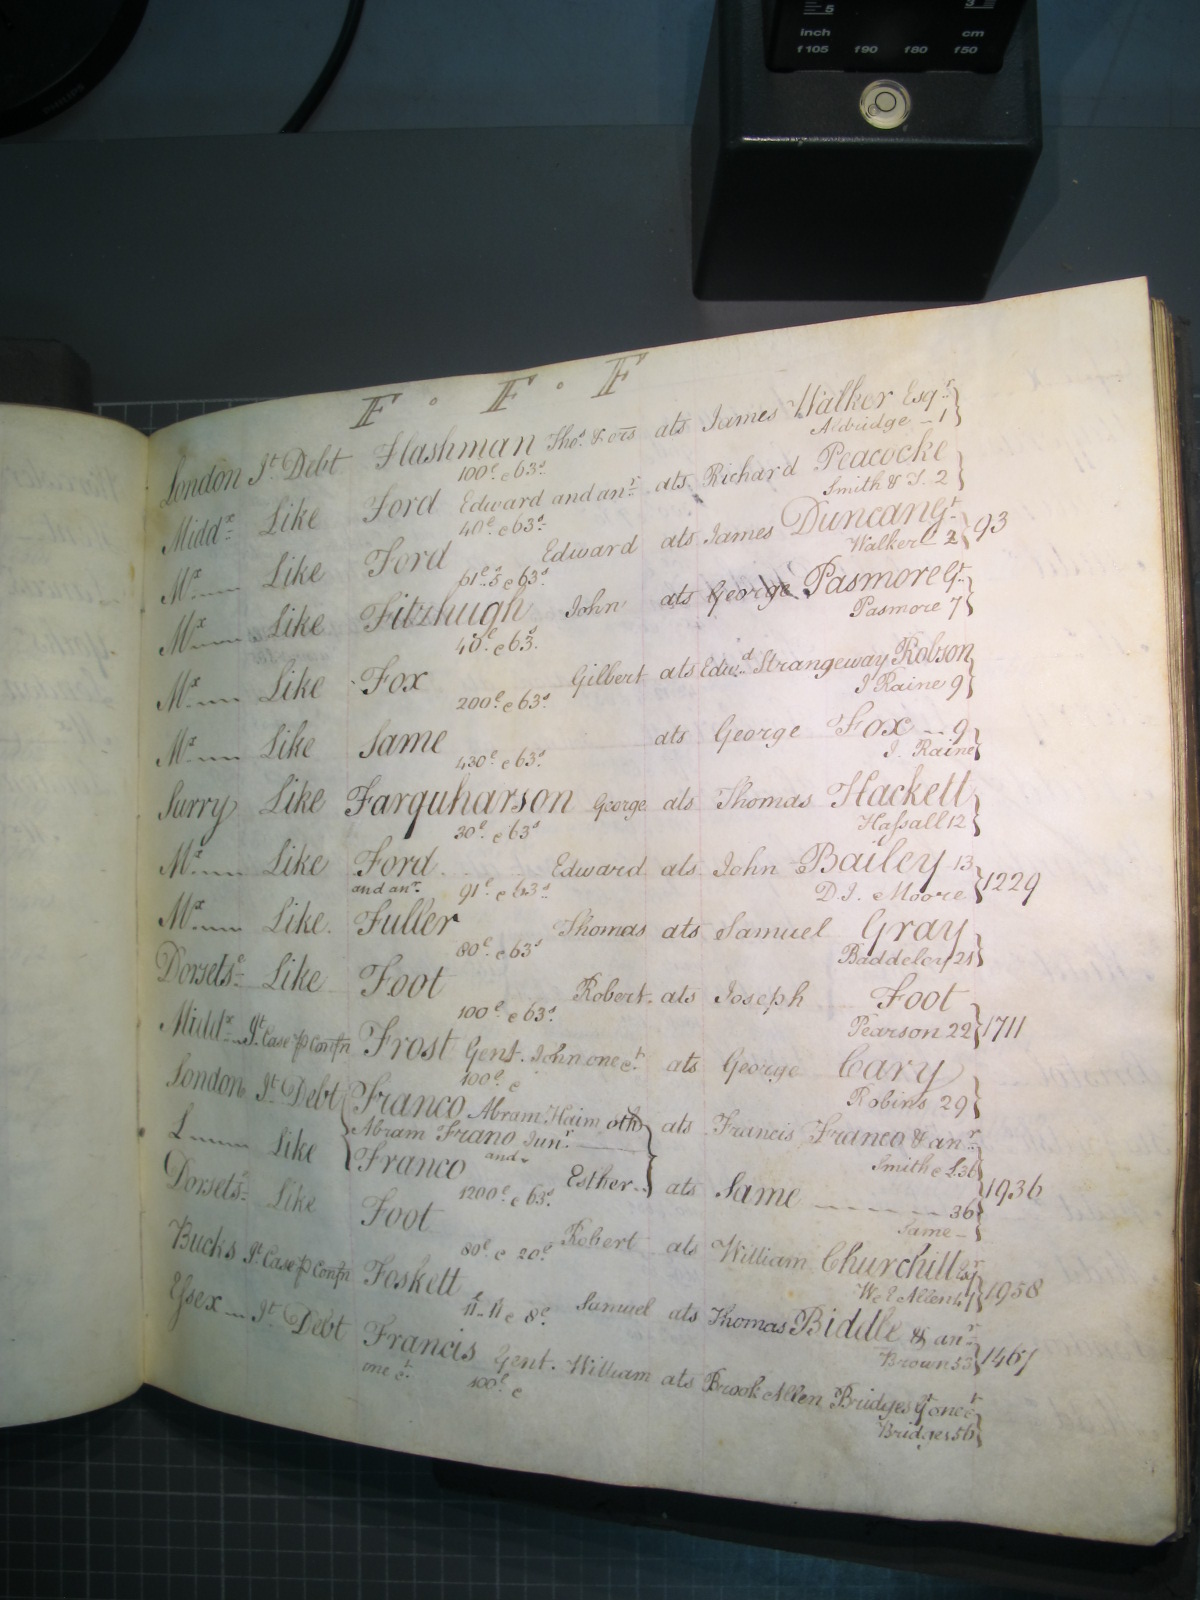 5
3
inch cm
f105 f90 f80 f50
F · F · F
London Jt Debt Flashman Thos. & ors ats James Walker Esqr. }
100£ c 63s. Aldridge - 1
Middx Like Ford Edward and anr. ats Richard Peacocke }
40£ c 63s. Smith & S. 2
Mx Like Ford Edward ats James Duncan Gt. } 93
61£..5 c 63s. Walker 2
Mx Like Fitzhugh John ats George Pasmore Gt. }
40£. c 63s. Pasmore 7
Mx Like Fox Gilbert ats Edwd. Strangeway Robson }
200£ c 63s. J Raine 9
Mx Like Same ats George Fox -- 9 }
430£. c 63s. J. Raine
Surry Like Farquharson George ats Thomas Hackett }
30£. c 63s Hassall 12
Mx Like Ford Edward ats John Bailey 13 } 1229
and anr. 91£. c 63s. D.J. Moore
Mx Like. Fuller Thomas ats Samuel Gray }
80£. c 63s Baddeley 21
Dorsets. Like Foot Robert. ats Joseph Foot } 1711
100£ c 63s. Pearson 22
Middx Jt. Case p Confn Frost Gent. John one &ct. ats George Cary }
100£. c Robins 29
London Jt. Debt { Franco Abram Haim oth } ats Francis Franco & anr. }
Abram Frano Junr. Smith & S. 36
L Like Franco and Esther ats Same ---- 36 } 1936
1200£. c 63s. Same -
Dorsets. Like Foot Robert ats William Churchill Esqr } 1958
80£. c 20£. W & E Allen 47
Bucks Jt. Case p Confn Foskett Samuel ats Thomas Biddle & anr. } 1467
11..11 c 8£. Brown 53
Essex Jt. Debt Francis Gent. William ats Brook Allen Bridges Gt one &ct }
one &ct. 100£. c Bridges 56